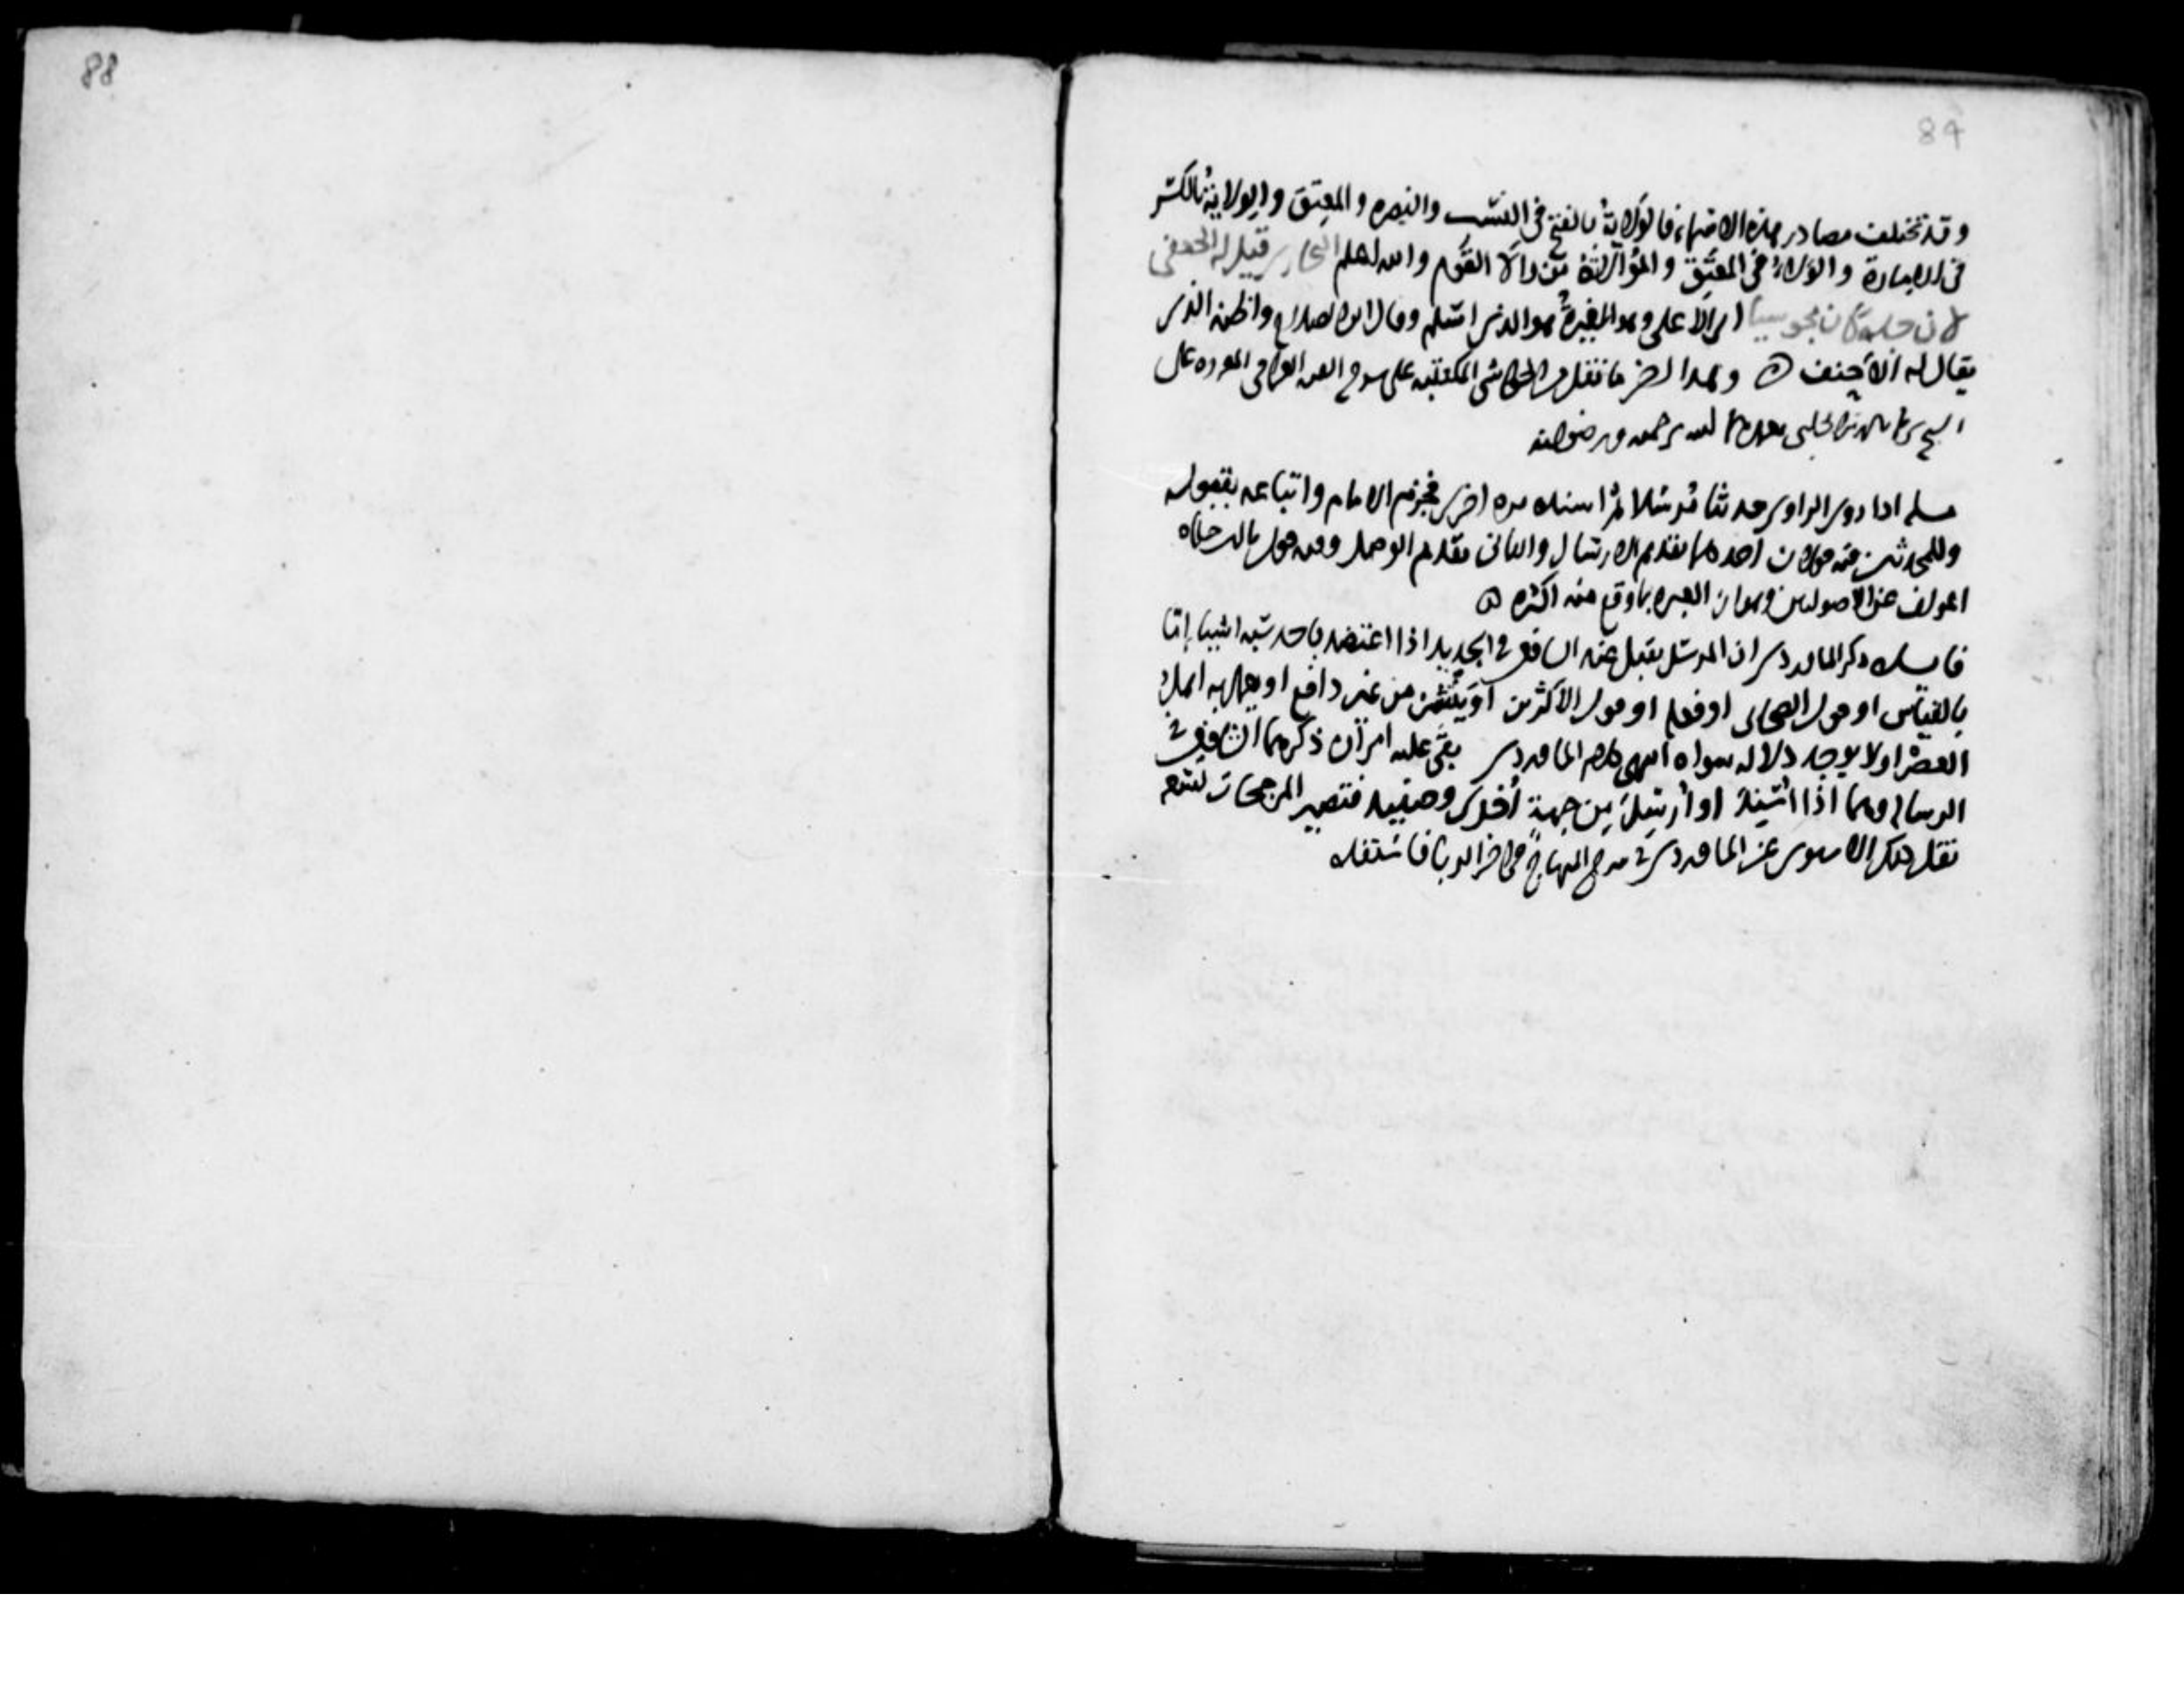 88
89
وقد تختلف مصادر هذه الاسماء فالولاية بالفتح في النسب والنصره والمعتق والولاية بالكسر
في الامارة والولاء في المعتق والموالاة من والا القوم والله اعلم البخاري قيل له الجعفي
لان جده كان مجوسيا اسلم على وهو المغيرة هو الذي اسلم وقال ابن الصلاح واظنه الذي
يقال له الاحنف ه وهذا اخر ما نقل من الحواشي المكتتبه على شرح العراقي
الحلبي الله برحمته ورضوانه
مسله اذا روى الراوي حديثا مرسلا ثم اسنده مره اخرى فجزم الامام واتباعه بقبوله
وللمحدثين فيه قولان احدهما يقدم الارسال والثاني يقدم الوصل وفيه قول ثالث حكاه
المولف عن الاصوليين وهو ان العبره بما وقع منه اكثر ه
فايده ذكر الماوردي ان المرسل يقبل عند الشافعي في الجديد اذا اعتضد باحد سبعه اشيا اما
بالقياس او قول الصحابي او فعله او قول الاكثرين او ينتشر من غير دافع او يعمل به اهل
العصر او لا يوجد دلاله سواه انتهى كلام الماوردي بقي عليه امران ذكرهما الشافعي في
الرساله وهما اذا اسند او ارسل من جهة اخرى وحينئذ فتصير المرجحات تسعه
نقل ذلك الاسنوي عن الماوردي في شرح المنهاج في اخر الربا فاستفده